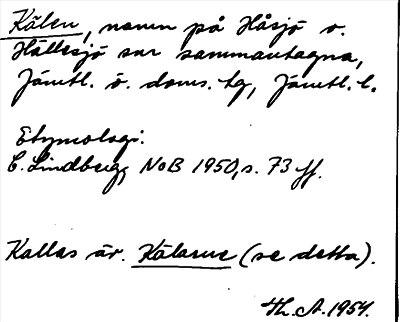 Kälen, namn på Håsjö o.
Hällesjö snr sammantagna,
Jämtl. ö. doms. tg, Jämtl. l.
Etymologi:
E. Lindberg, NoB 1950, s. 73 ff.
Kallas äv. Kälarne (se detta).
Th. A. 1954.